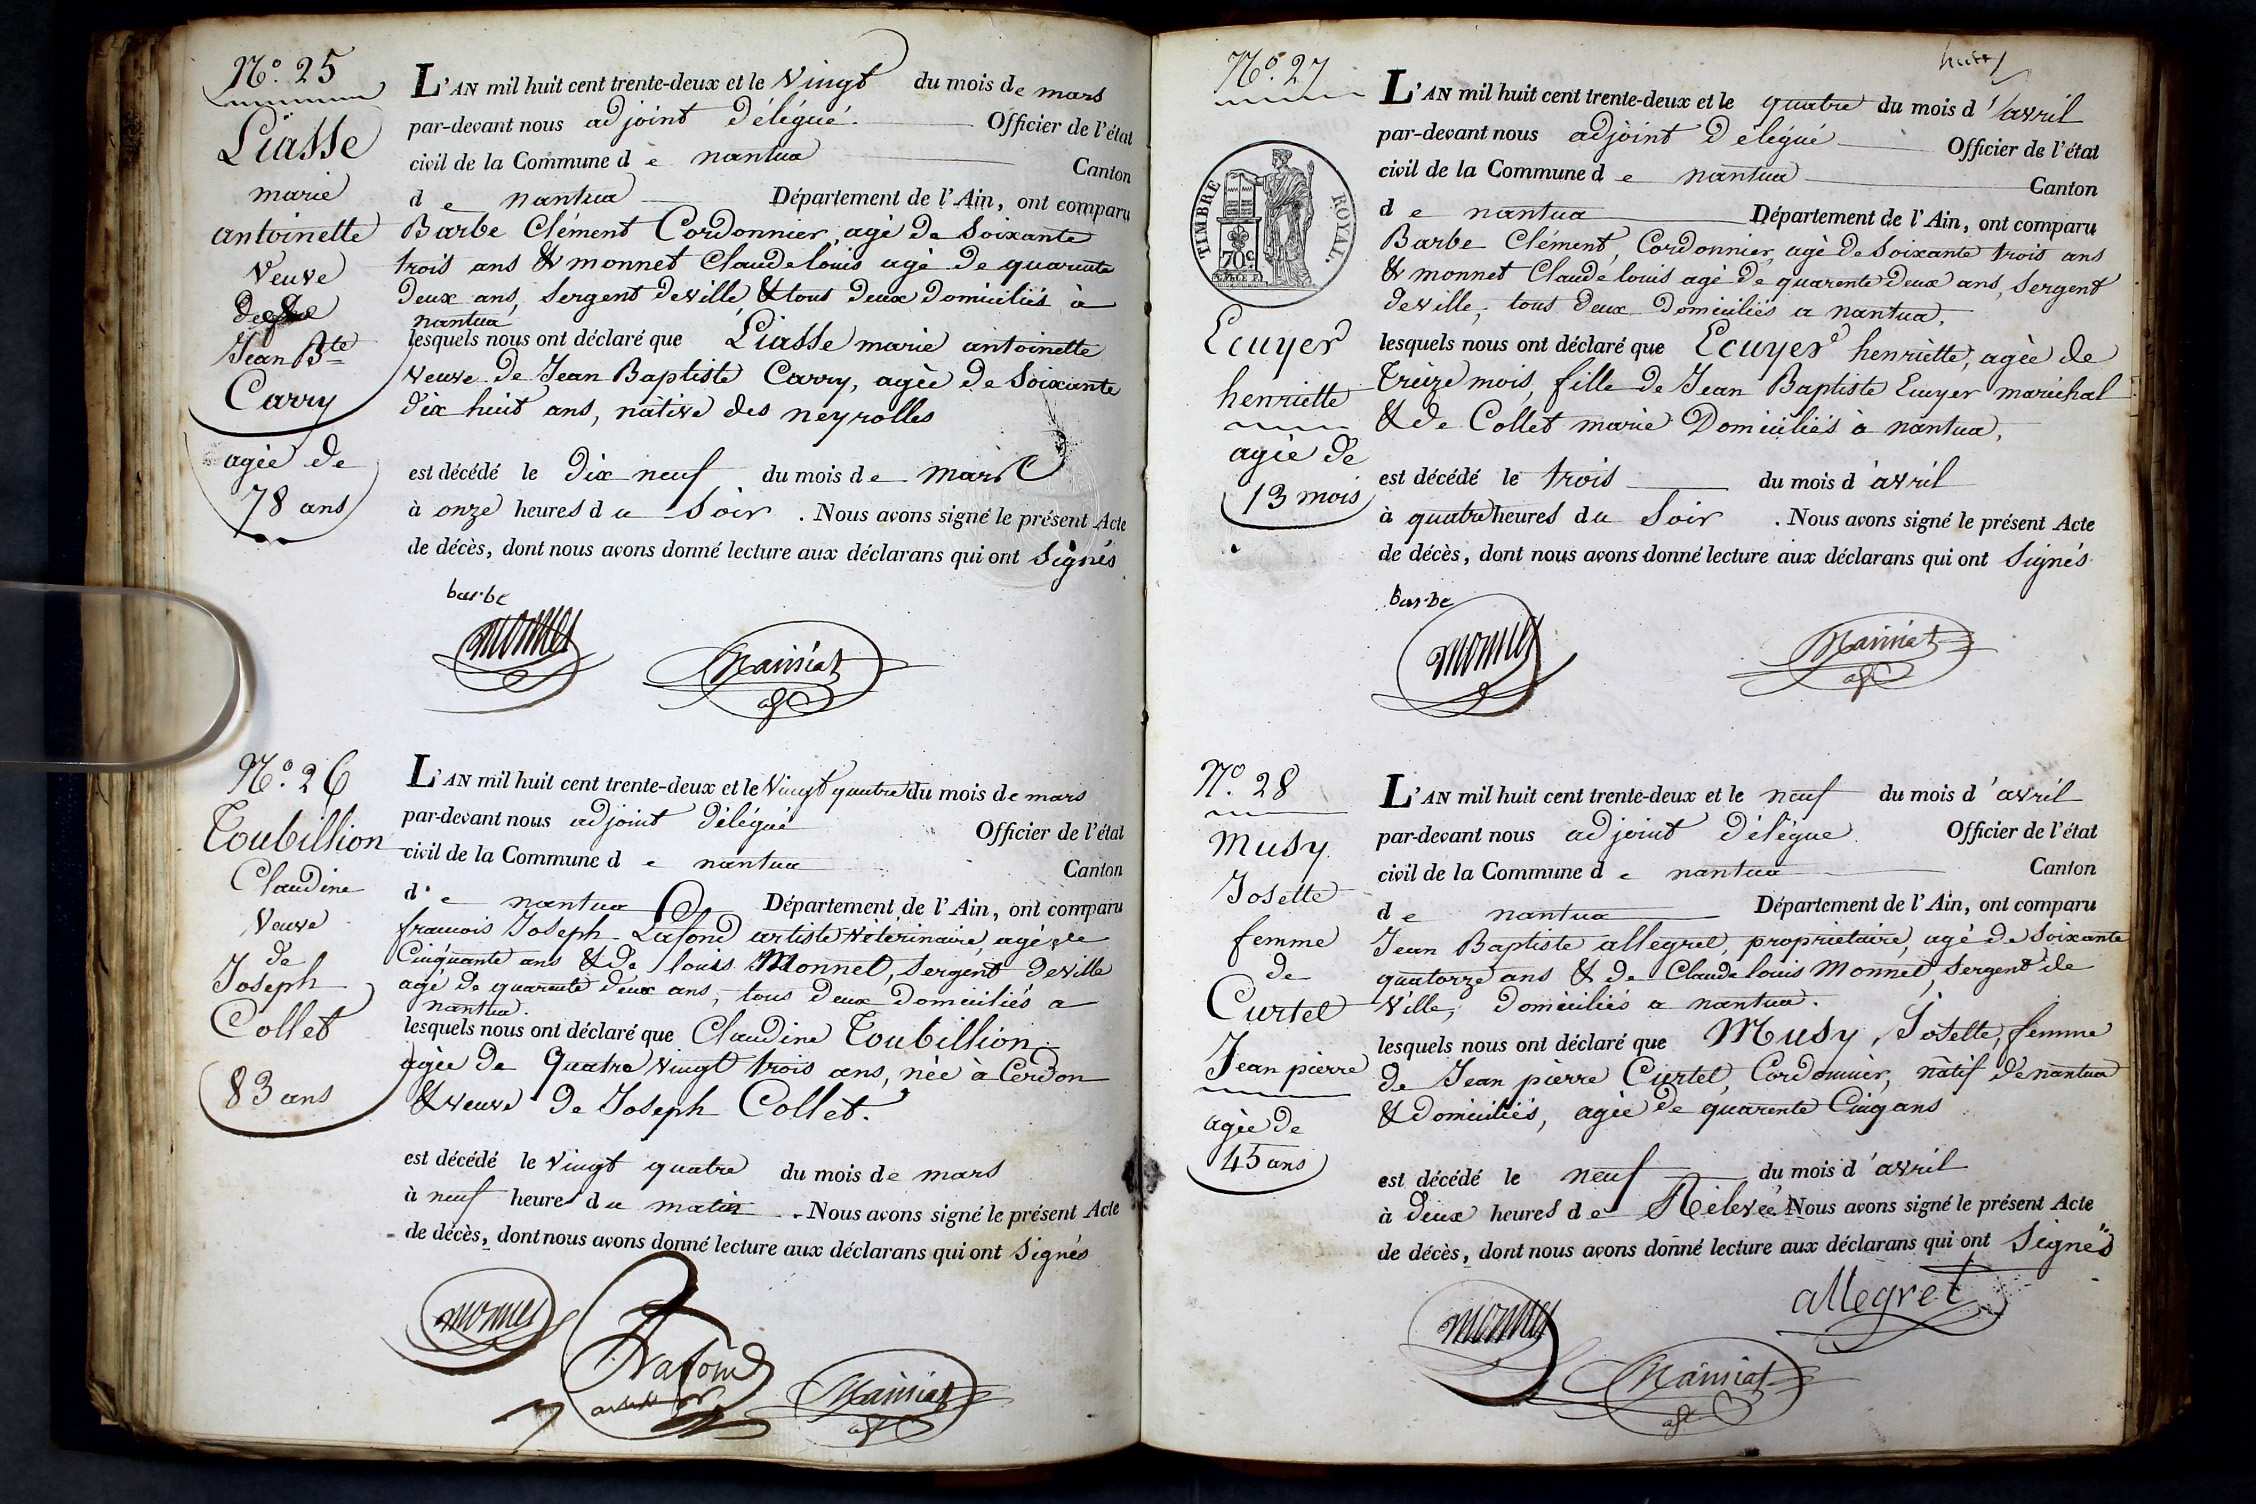 N.o 25
Liasse
marie
antoinette
Veuve
de
Jean Bte
Carry
agée de
78 ans
L'AN mil huit cent trente-deux et le Vingt du mois de mars
par-devant nous adjoint Délégué. Officier de l'état
civil de la Commune de nantua Canton
de nantua Département de l'Ain, ont comparu
Barbe Clément Cordonnier, agé de Soixante
trois ans & monnet Claude louis agé de quarente
Deux ans, Sergent deville & tous deux Domiciliés à
nantua
lesquels nous ont déclaré que Liasse marie antoinette
Veuve de Jean Baptiste Carry, agée de Soixante
dix huit ans, native des neyrolles
est décédé le dix neuf du mois de mars
à onze heures du Soir. Nous avons signé le présent Acte
de décès, dont nous avons donné lecture aux déclarans qui ont Signés
barbe
monnet
Mainiat
adj
N.o 26
Toubillion
Claudine
Veuve
de
Joseph
Collet
83 ans
L'AN mil huit cent trente-deux et le Vingt quatre du mois de mars
par-devant nous adjoint Délégué Officier de l'état
civil de la Commune de nantua Canton
de nantua Département de l'Ain, ont comparu
francois Joseph Lafond artiste Veterinaire, agé de
Cinquante ans & de louis Monnet, Sergent deville
agé de quarente deux ans, tous deux domiciliés a
nantua.
lesquels nous ont déclaré que Claudine Toubillion
agée de Quatre Vingt trois ans, née à Cerdon
& veuve de Joseph Collet.
est décédé le Vingt quatre du mois de mars
à neuf heures du matin. Nous avons signé le présent Acte
de décès, dont nous avons donné lecture aux déclarans qui ont Signés
monnet
Lafond
Mainiat
adj
huit
N.o 27
TIMBRE ROYAL.
70c
Ecuyer
henriette
agée de
13 mois
L'AN mil huit cent trente-deux et le quatre du mois d'avril
par-devant nous adjoint Délégué Officier de l'état
civil de la Commune de nantua Canton
de nantua Département de l'Ain, ont comparu
Barbe Clément, Cordonnier, agé de Soixante trois ans
& monnet Claude louis agé de quarente Deux ans, Sergent
deville, tous Deux Domiciliés a nantua,
lesquels nous ont déclaré que Ecuyer henriette, agée de
Treize mois, fille de Jean Baptiste Ecuyer maréchal
& de Collet marie Domiciliés à nantua,
est décédé le trois du mois d'avril
à quatre heures du Soir. Nous avons signé le présent Acte
de décès, dont nous avons donné lecture aux déclarans qui ont Signés
barbe
monnet
Mainiat
adj
N.o 28
Musy
Josette
femme
de
Curtet
Jean pierre
agée de
45 ans
L'AN mil huit cent trente-deux et le neuf du mois d'avril
par-devant nous adjoint Délégué Officier de l'état
civil de la Commune de nantua Canton
de nantua Département de l'Ain, ont comparu
Jean Baptiste allegret, proprietaire, agé de Soixante
quatorze ans & de Claude louis Monnet, Sergent de
Ville, Domiciliés a nantua.
lesquels nous ont déclaré que Musy, Josette, femme
de Jean pierre Curtet, Cordonnier, natif de nantua
& domiciliés, agée de quarente Cinq ans
est décédé le neuf du mois d'avril
à deux heures de Rélevée Nous avons signé le présent Acte
de décès, dont nous avons donné lecture aux déclarans qui ont Signés
monnet
allegret
Mainiat
adj